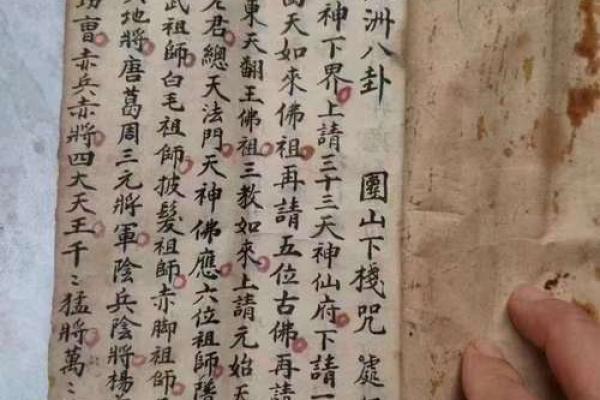 洲八卦 圍山下棧咒 處
神下界上請三十三天神仙府下請一
當天如來佛祖再請五位古佛再請
東天翻王佛祖三教如來上請元始天
老君總天法門天神佛應六位祖師隱
武祖師白毛祖師披髮祖師赤脚祖師
地將唐葛周三元將軍陰兵陰將楊
曹赤兵赤將四大天王千〻猛將萬〻